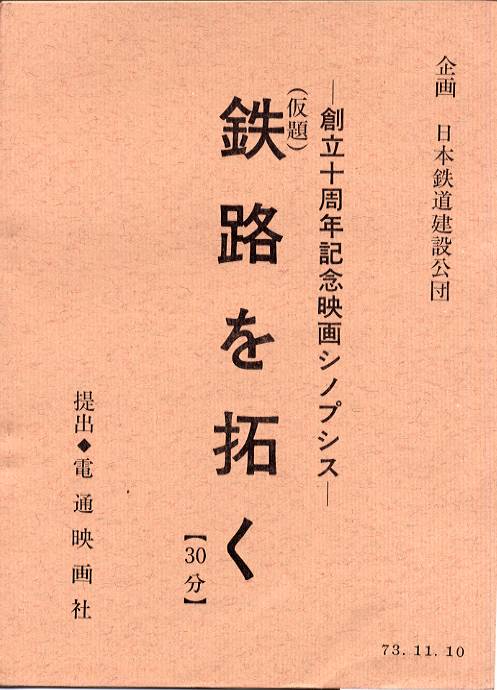 企画　日本鉄道建設公団
―創立十周年記念映画シノプシス―
（仮題）
鉄路を拓く
【30分】
提出◆電通映画社
73.11.10